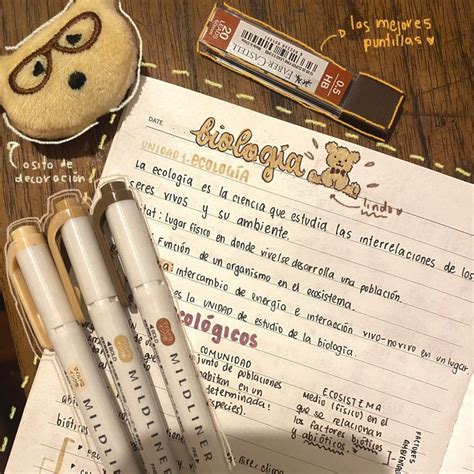 las mejores
puntillas
20
LEADS
FABER-CASTELL
0.5
HB
osito de
decoración
DATE
biología
UNIDAD 1-ECOLOGÍA
lindo
La ecología es la ciencia que estudia las interrelaciones de los
seres vivos y su ambiente.
tat: lugar físico en donde vive/se desarrolla una población.
Función de un organismo en el ecosistema.
a: intercambio de energía e interacción vivo-no vivo en un lugar.
es la UNIDAD de estudio de la biología.
cológicos
COMUNIDAD
junto de poblaciones
habitan en un
determinada:
species).
ECOSISTEMA
medio (físico) en el
que se relacionan
los factores bióticos
y abióticos
FACTORES
MILDLINER
MILDLINER
MILDLINER
bióticos